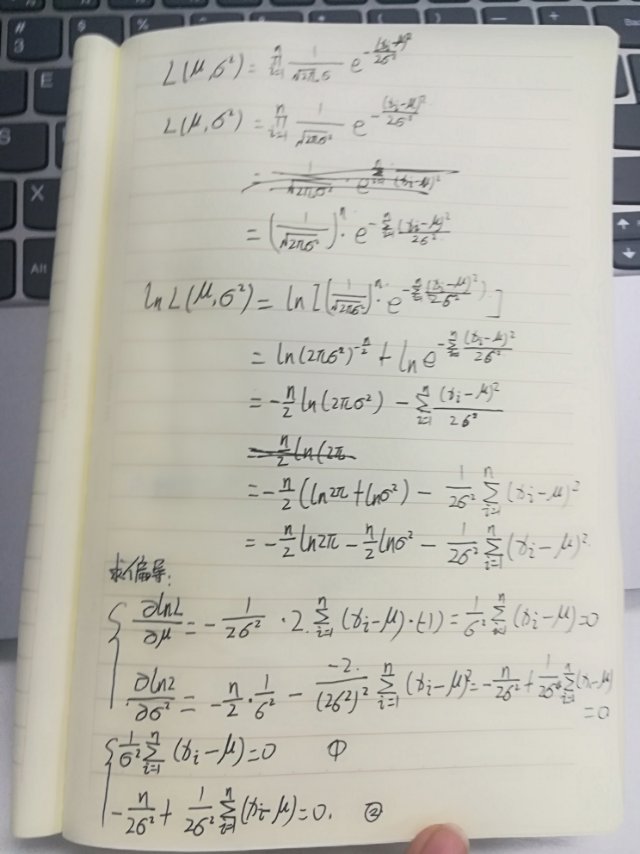 L(μ,σ²) = ∏_{i=1}^{n} 1/√(2πσ) e^{-(xᵢ-μ)²/2σ²}
L(μ,σ²) = ∏_{i=1}^{n} 1/√(2πσ²) e^{-(xᵢ-μ)²/2σ²}
= (1/√(2πσ²))ⁿ · e^{-∑_{i=1}^{n} (xᵢ-μ)²/2σ²}
ln L(μ,σ²) = ln [(1/√(2πσ²))ⁿ · e^{-∑_{i=1}^{n} (xᵢ-μ)²/2σ²}]
= ln(2πσ²)^{-n/2} + ln e^{-∑_{i=1}^{n} (xᵢ-μ)²/2σ²}
= -n/2 ln(2πσ²) - ∑_{i=1}^{n} (xᵢ-μ)²/2σ²
= -n/2 ln(2π
= -n/2 (ln2π + lnσ²) - 1/2σ² ∑_{i=1}^{n} (xᵢ-μ)²
= -n/2 ln2π - n/2 lnσ² - 1/2σ² ∑_{i=1}^{n} (xᵢ-μ)²
求偏导:
{ ∂lnL/∂μ = -1/2σ² · 2 ∑_{i=1}^{n} (xᵢ-μ)·(-1) = 1/σ² ∑_{i=1}^{n} (xᵢ-μ) = 0
∂lnL/∂σ² = -n/2 · 1/σ² - -2/(2σ²)² ∑_{i=1}^{n} (xᵢ-μ)² = -n/2σ² + 1/2σ⁴ ∑_{i=1}^{n} (xᵢ-μ) = 0
{ 1/σ² ∑_{i=1}^{n} (xᵢ-μ) = 0 ①
-n/2σ² + 1/2σ² ∑_{i=1}^{n} (xᵢ-μ) = 0. ②
3
X
Alt